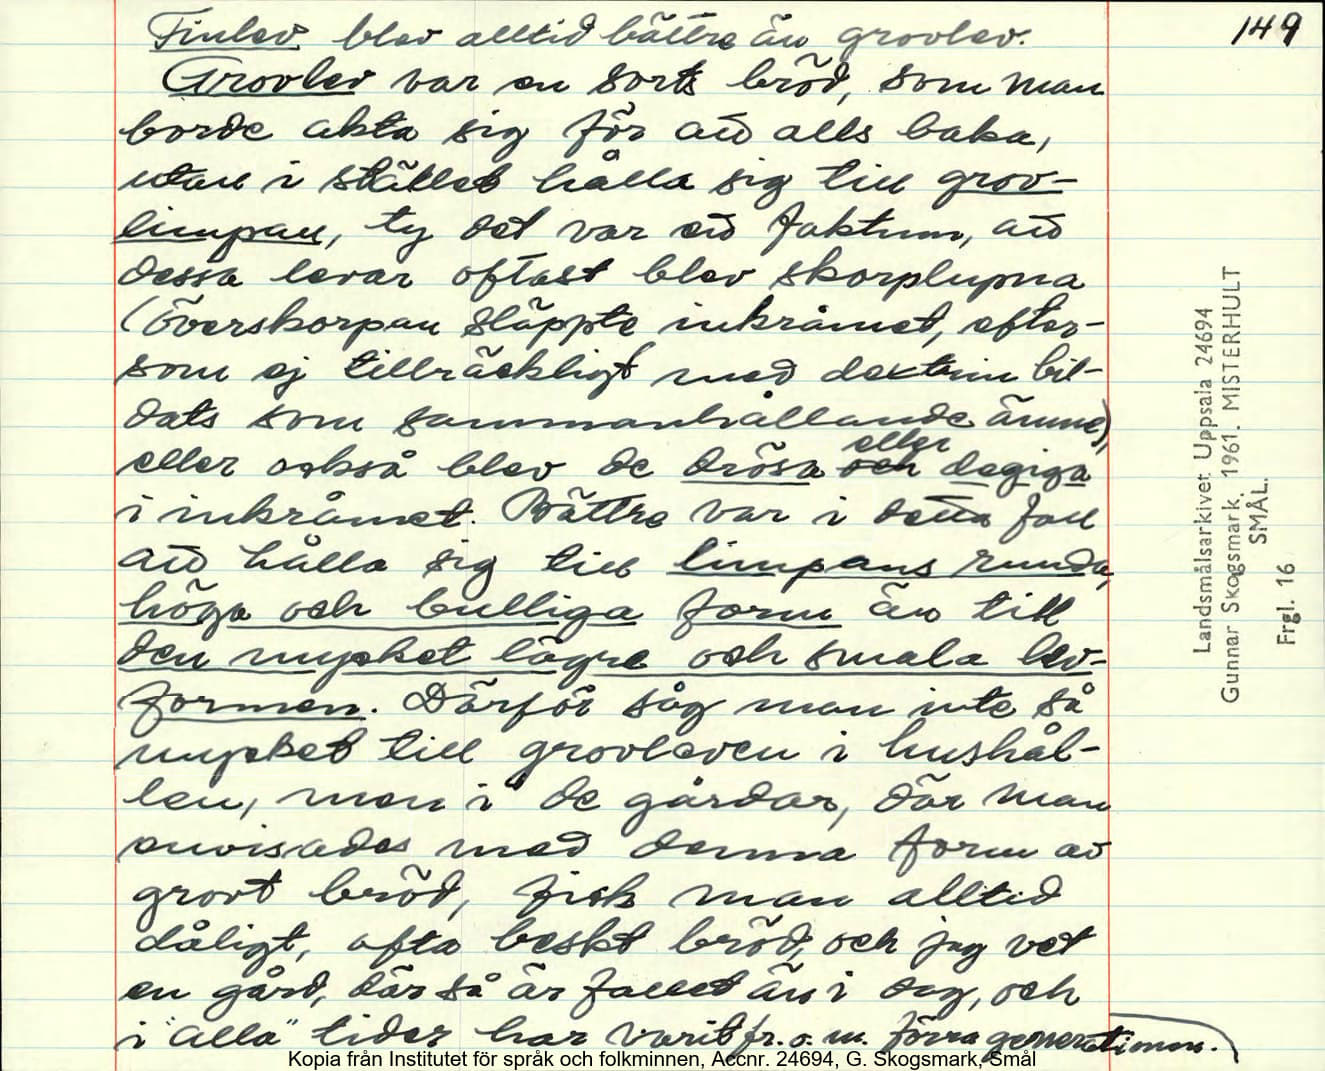 149
Finlev blev alltid bättre än grovlev.
Grovlev var en sorts bröd, som man
borde akta sig för att alls baka,
utan i stället hålla sig till grov-
limpan, ty det var ett faktum, att
dessa levar oftast blev skorplupna
(överskorpan släppte inkråmet, efter-
som ej tillräckligt med dextrin bil-
dats som sammanhållande ämne),
eller också blev de drösa och eller degiga
i inkråmet. Bättre var i detta fall
att hålla sig till limpans runda,
höga och bulliga form än till
den mycket lägre och smala lev-
formen. Därför såg man inte så
mycket till grovleven i hushål-
len, men i de gårdar, där man
envisades med denna form av
grovt bröd, fick man alltid
dåligt, ofta beskt bröd, och jag vet
en gård, där så är fallet än i dag, och
i "alla" tider har varit fr. o. m. förra generationen.
Landsmålsarkivet Uppsala 24694
Gunnar Skogsmark. 1961. MISTERHULT
SMÅL.
Frgl. 16
Kopia från Institutet för språk och folkminnen, Accnr. 24694, G. Skogsmark, Smål